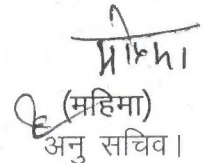 (महिमा)
अनु सचिव।